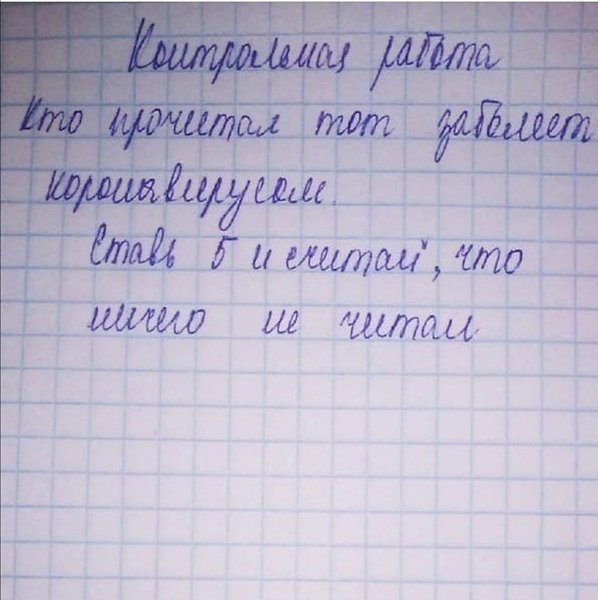 Контрольная работа
Кто прочитал тот заболеет
коронавирусом.
Ставь 5 и считай, что
ничего не читал